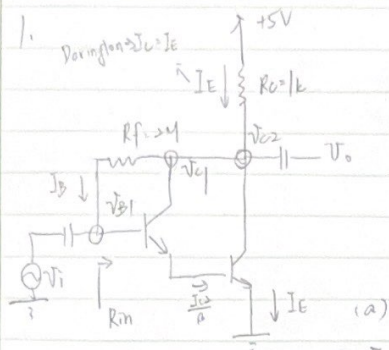 1.
+5V
Darington→IC=IE
IE↓ RC=1k
Rf→M
VC2
VC1
Vo
IB↓
VB1
Vi
Rin
↓IE
(a)